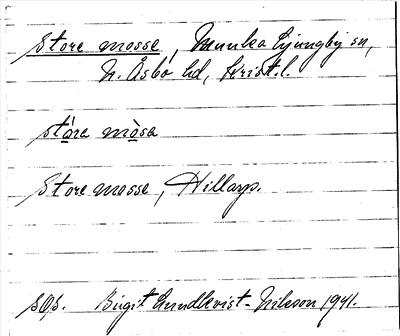 Store mosse, Munka Ljungby sn,
N. Åsbo hd, Krist. l.
stóra mòsa
Store mosse, Hillarp.
sOp. Birgit Lundkvist-Nilsson 1941.